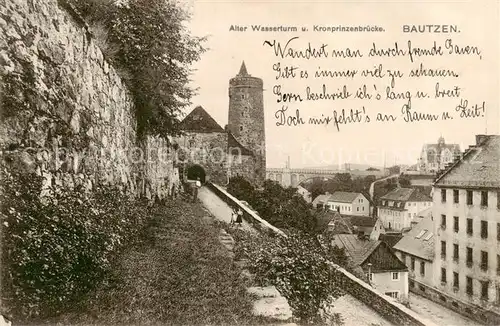 Alter Wasserturm u. Kronprinzenbrücke. BAUTZEN.
Wandert man durch fremde Gauen,
Gibt es immer viel zu schauen.
Gern beschrieb ich's lang u. breit,
Doch mir fehlt's an Raum u. Zeit!